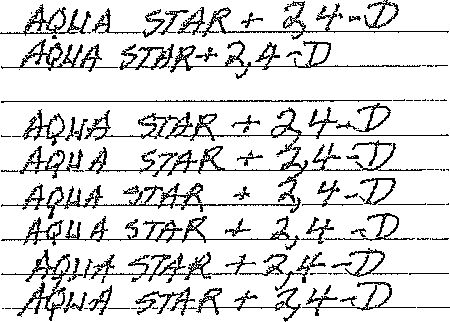 AQUA STAR + 2,4-D
AQUA STAR + 2,4-D
AQUA STAR + 2,4-D
AQUA STAR + 2,4-D
AQUA STAR + 2,4-D
AQUA STAR + 2,4-D
AQUA STAR + 2,4-D
AQUA STAR + 2,4-D